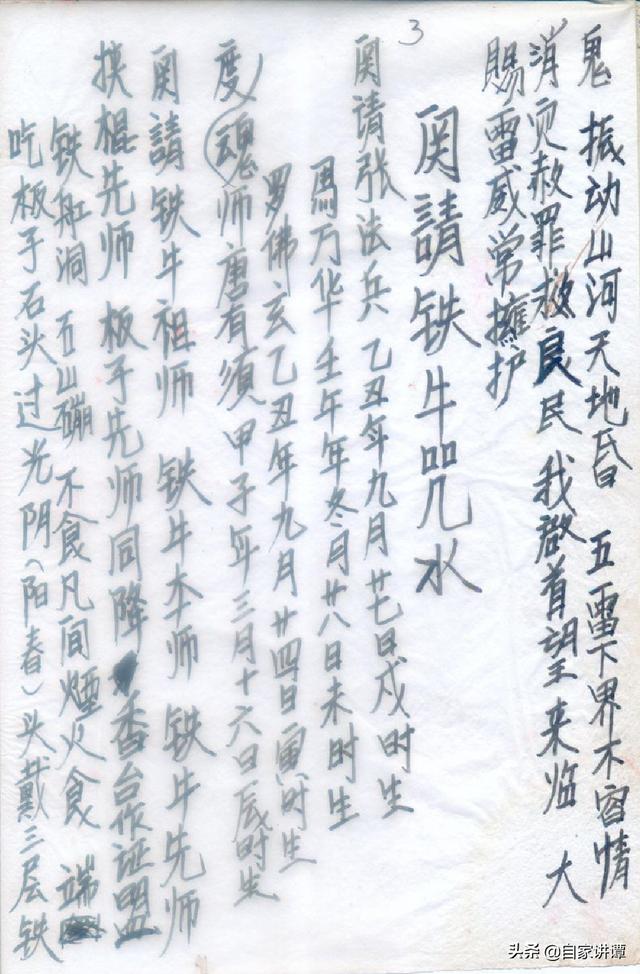 3
鬼 振动山河天地昏 五雷下界不容情
消灾赦罪救良民 我啟首望来临 大
賜雷威常擁护
闵請铁牛咒水
闵请张法兵 乙丑年九月廿七日戍时生
馬万华壬午年冬月廿八日未时生
罗佛玄乙丑年九月廿四日寅时生
度(魂)师唐有须甲子年三月十六日辰时生
闵請铁牛祖师 铁牛本师 铁牛先师
挾棍先师 板子先师同降香台作证盟
铁船洞 石山磞 不食凡间煙火食 端
吃板子石头过光阴(阳春)头戴三层铁
头条 @自家讲谭